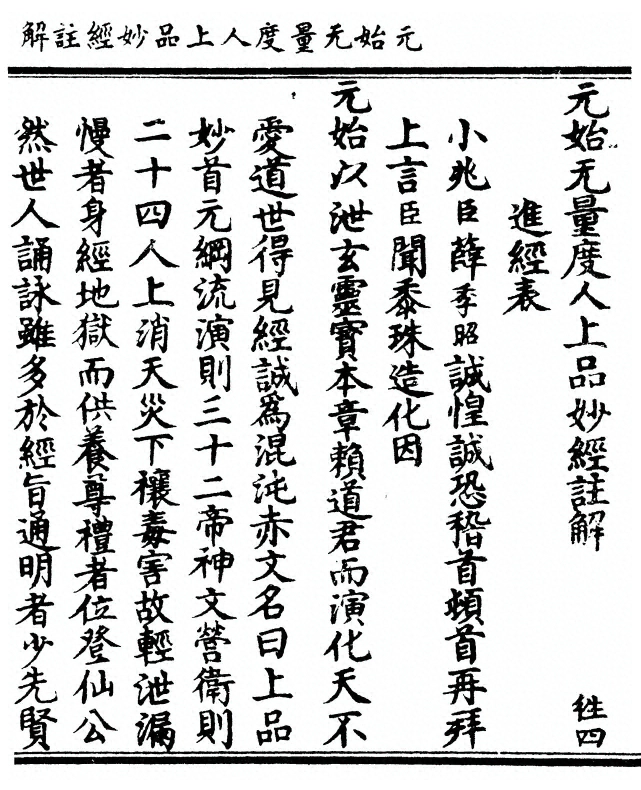 元始无量度人上品妙經註解
元始无量度人上品妙經註解 甡四
進經表
小兆臣薛季昭誠惶誠恐稽首頓首再拜
上言臣聞黍珠造化因
元始以泄玄靈寶本章賴道君而演化天不
愛道世得見經誠為混沌赤文名曰上品
妙首元綱流演則三十二帝神文營衛則
二十四人上消天災下禳毒害故輕泄漏
慢者身經地獄而供養尊禮者位登仙公
然世人誦詠雖多於經旨通明者少先賢